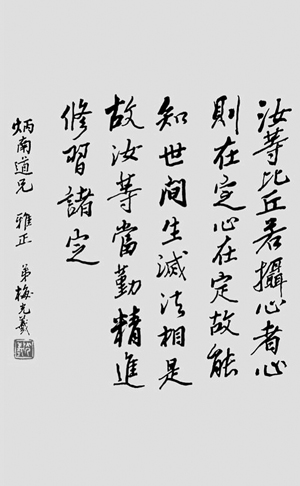 汝等比丘若攝心者心
則在定心在定故能
知世间生滅法相是
故汝等當勤精進
修習諸定
炳南道兄 雅正 弟梅光羲